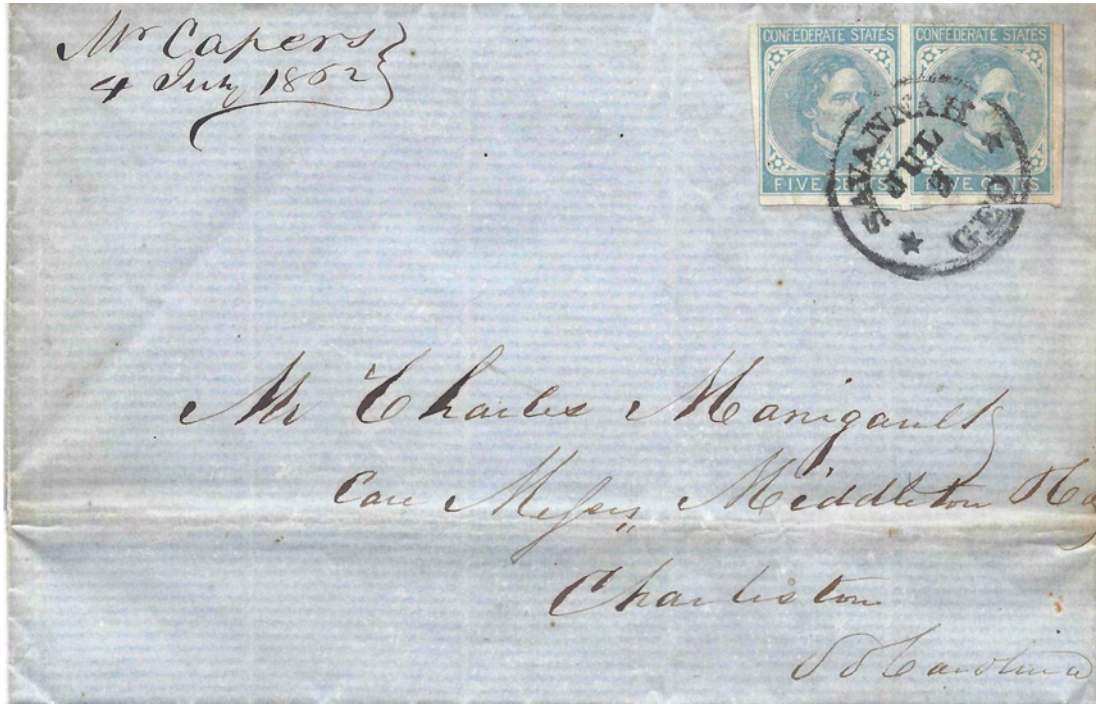 Mr Capers
4 July 1862
CONFEDERATE STATES
CONFEDERATE STATES
FIVE CENTS
FIVE CENTS
SAVANNAH
GEO
JUL
Mr Charles Manigault
Care Messrs Middleton
Charleston
So Carolina